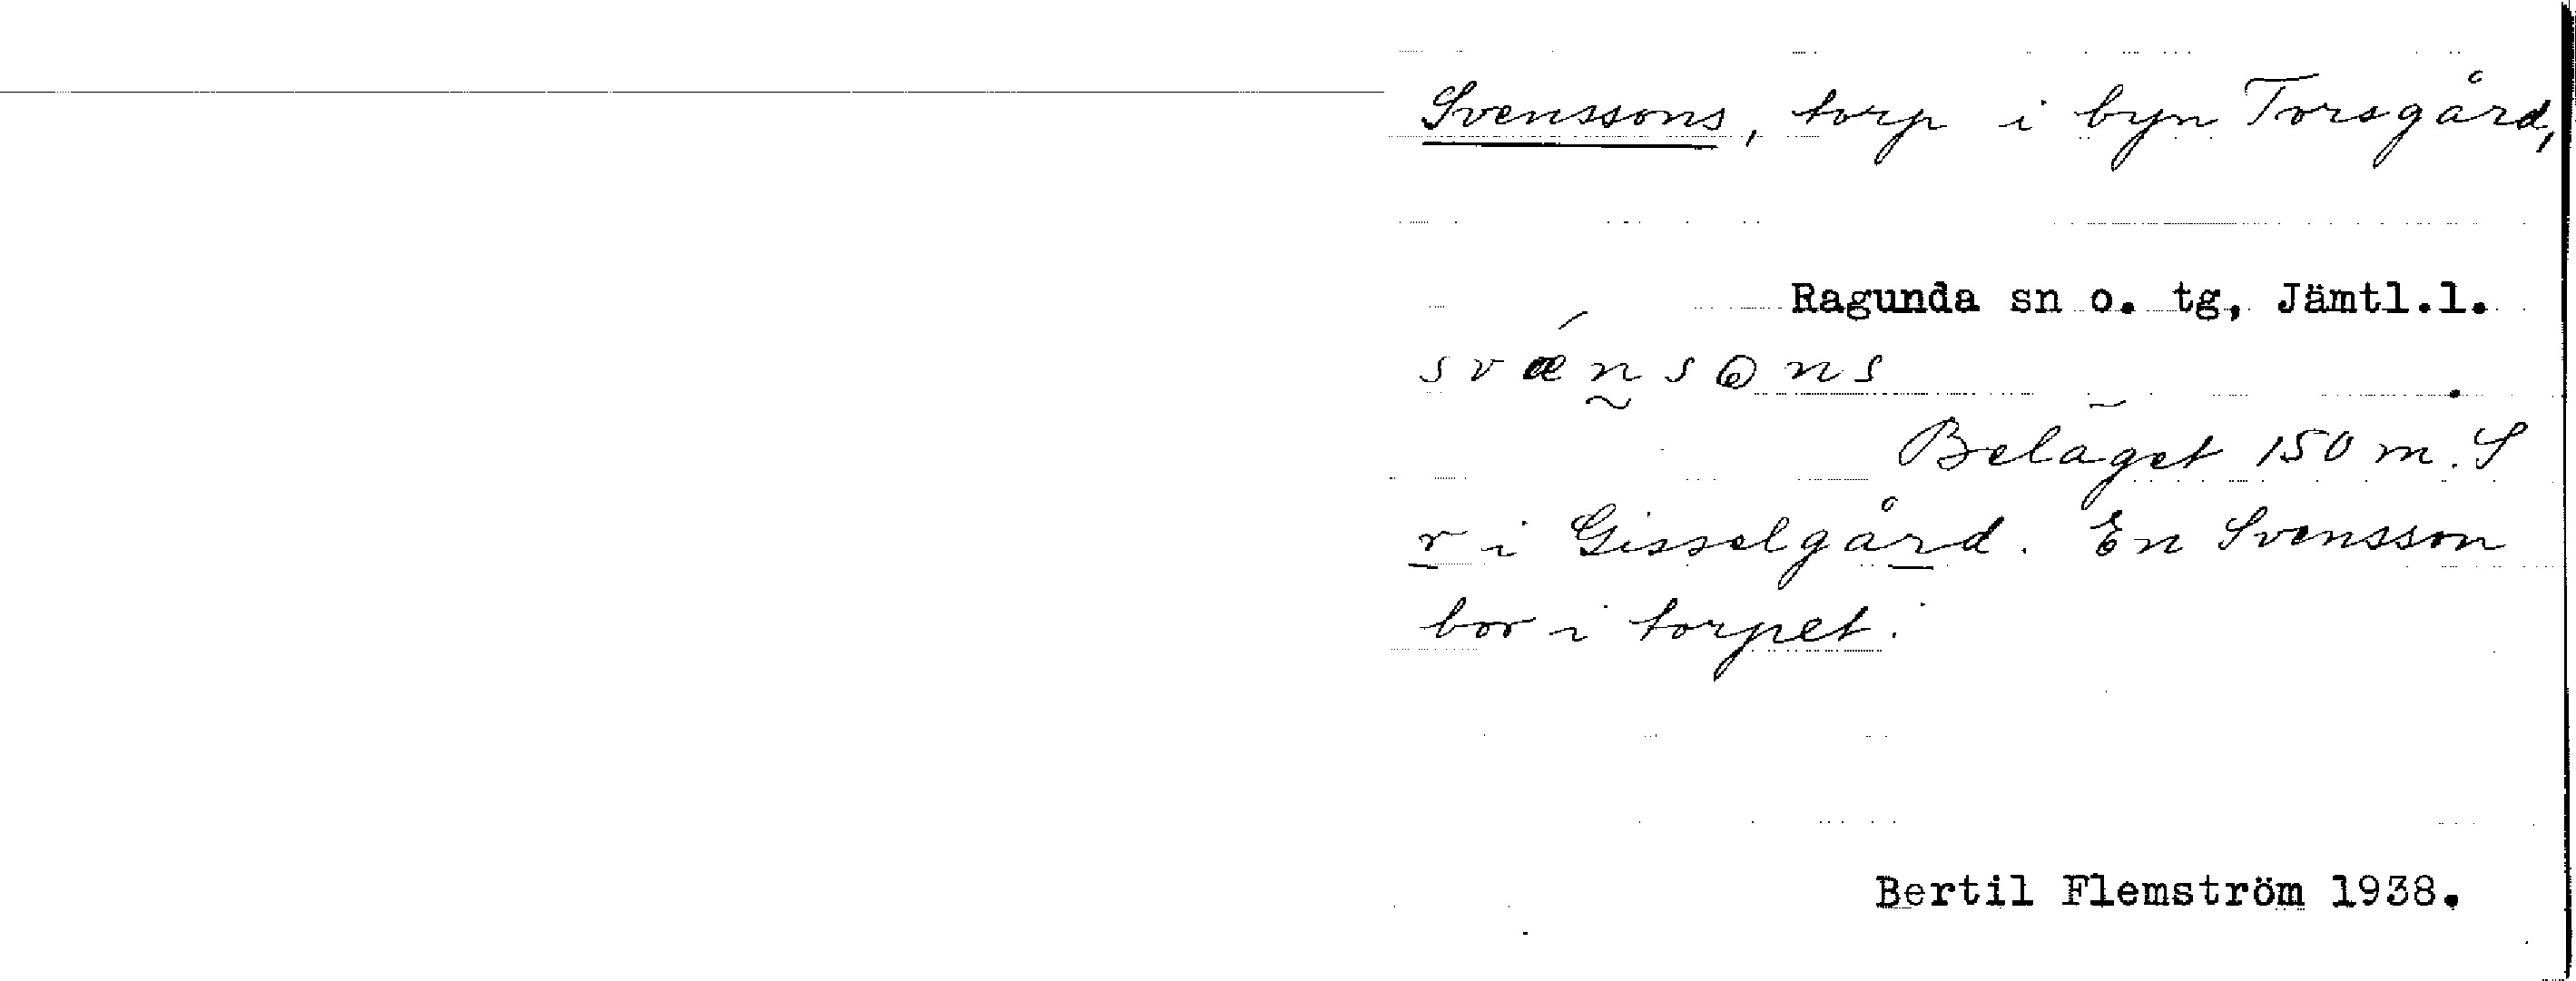 Svenssons, torp i byn Torsgård,
Ragunda sn o. tg, Jämtl.l.
svǽn̰sɷns .
Beläget 150 m. S
r i Gisselgård. En Svensson
bor i torpet.
Bertil Flemström 1938.